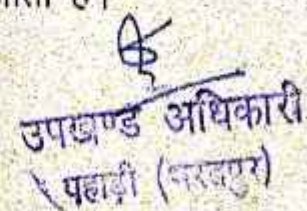 है।
उपखण्ड अधिकारी
पहाड़ी (भरतपुर)